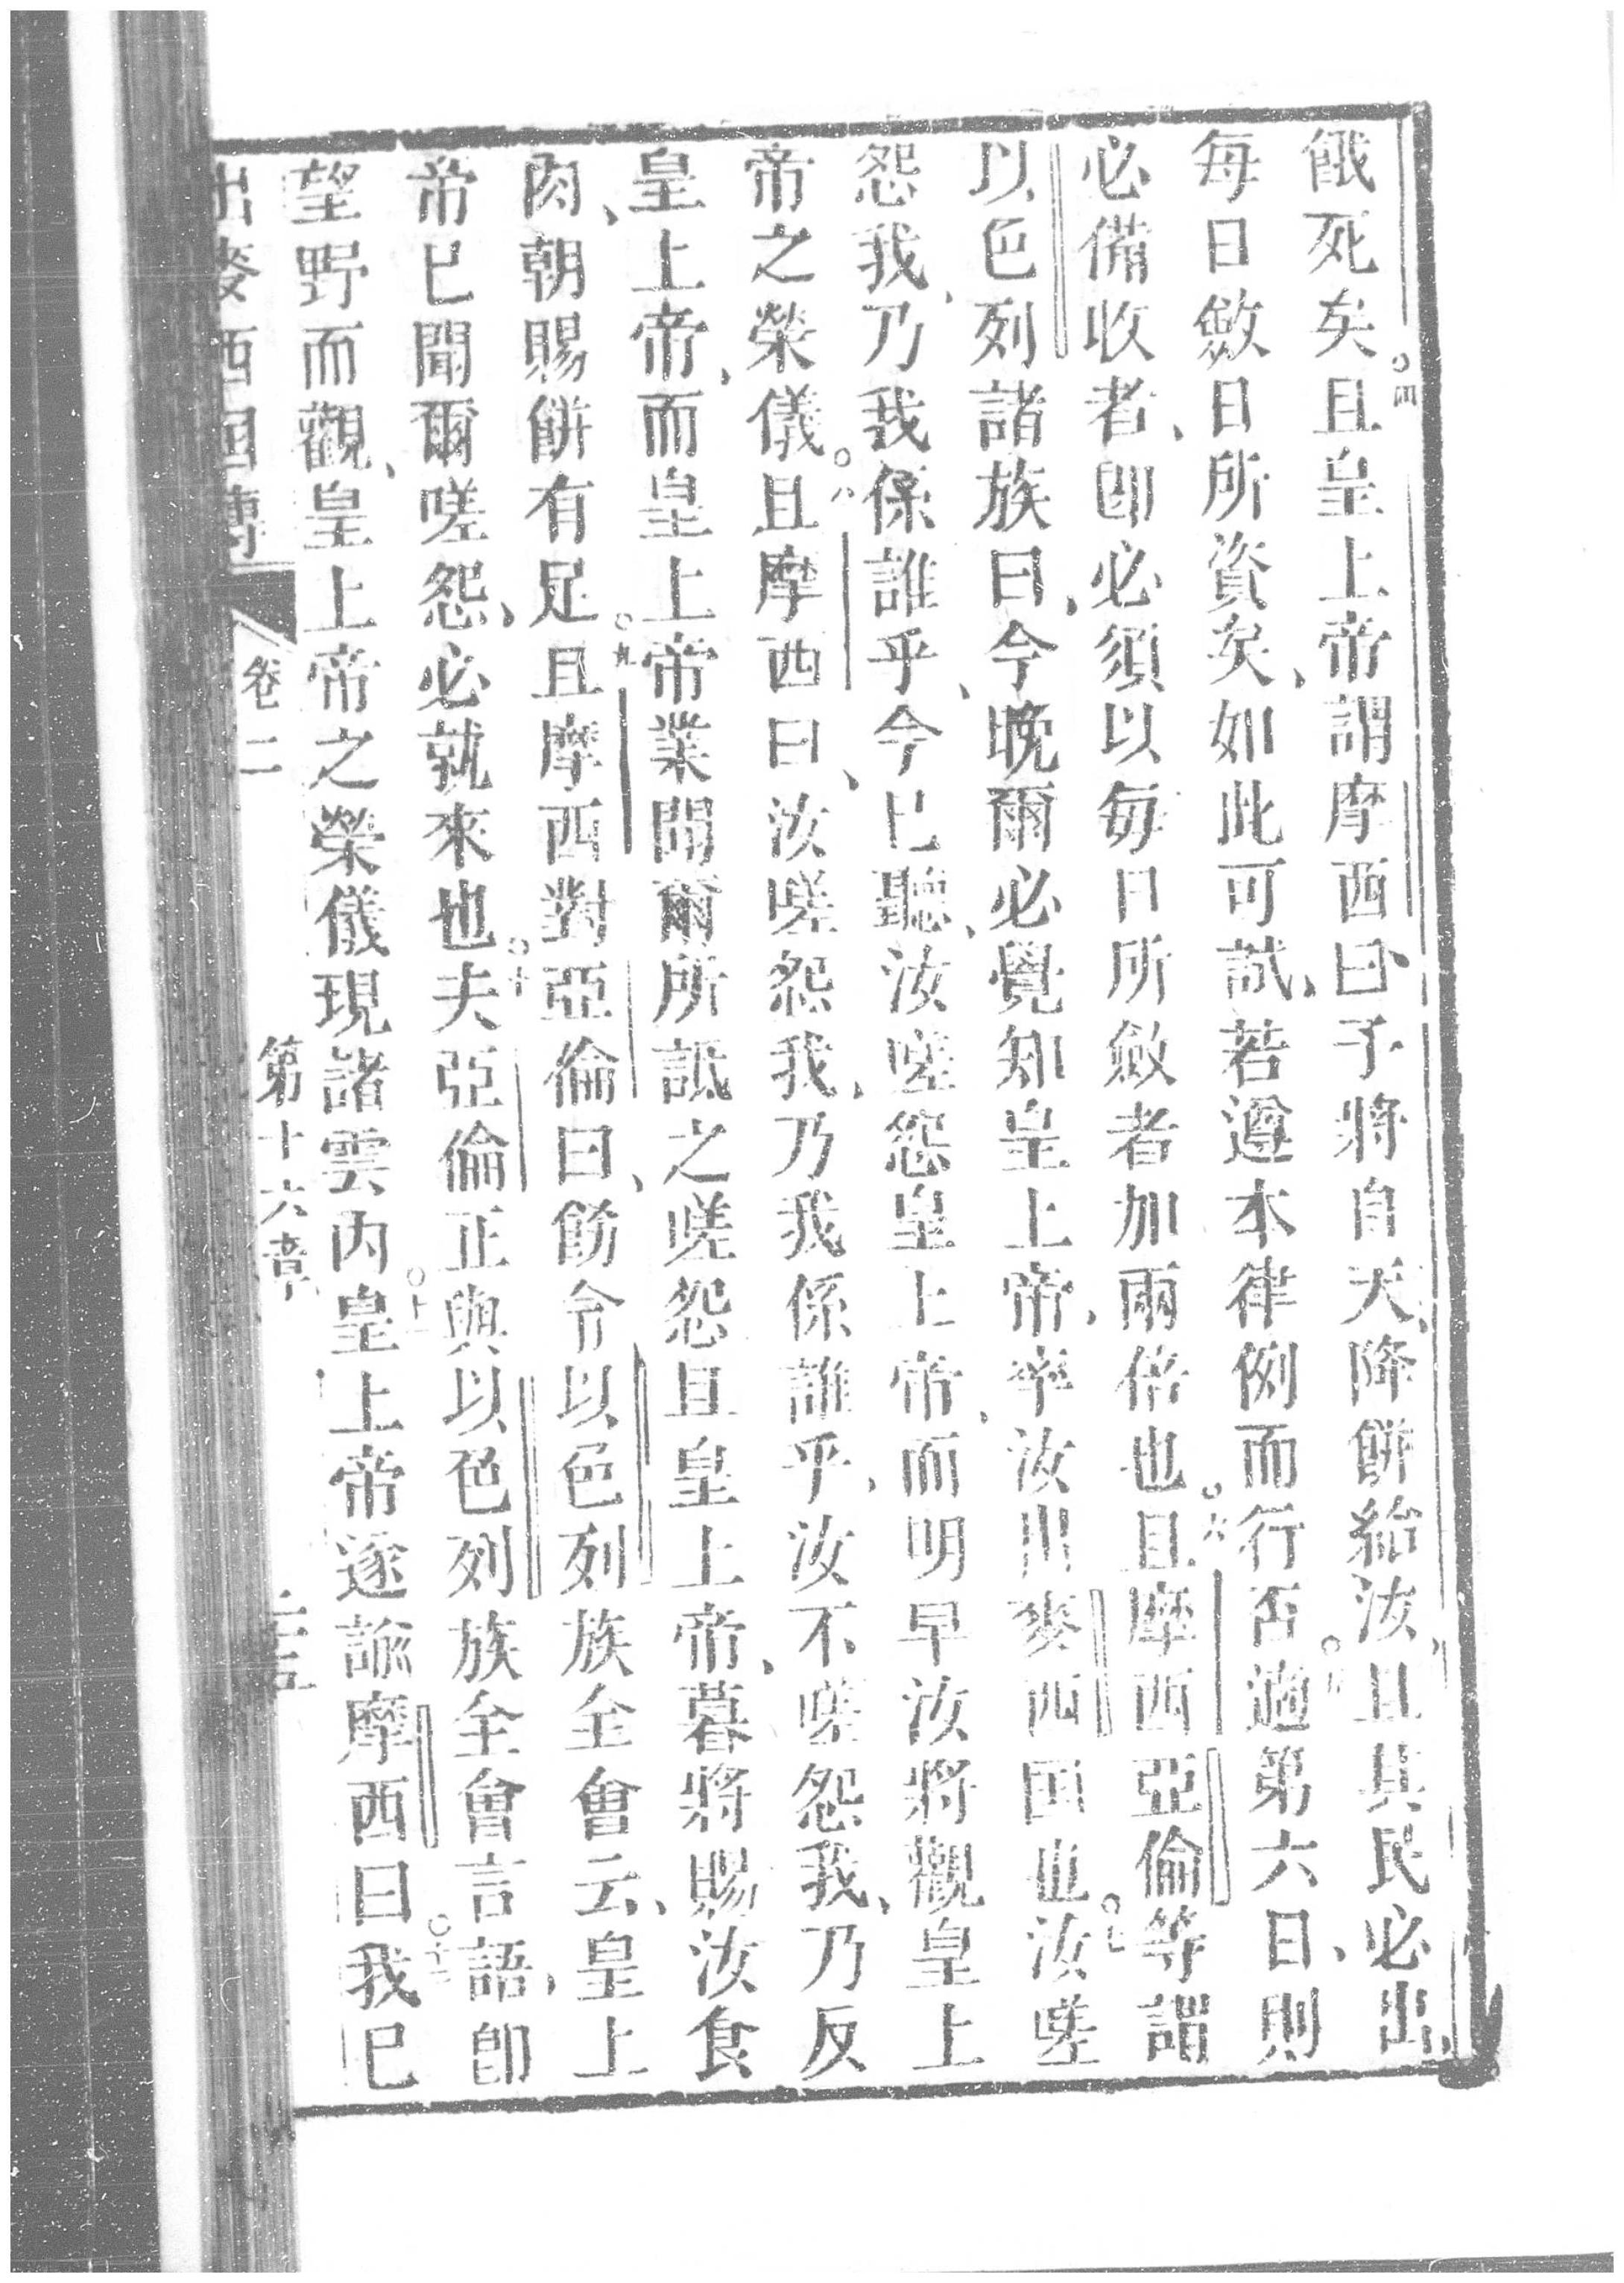 餓死矣○四且皇上帝謂摩西曰、予將自天、降餅給汝、且其民必出、
每日斂日所資矣、如此可試、若遵本律例而行否○五適第六日、則
必備收者、卽必須以每日所斂者加兩倍也○六且摩西亞倫等謂
以色列諸族曰、今晚爾必覺知皇上帝、率汝出麥西囯也○七汝嗟
怨我、乃我係誰乎、今已聽、汝嗟怨皇上帝、而明早汝將觀皇上
帝之榮儀○八且摩西曰、汝嗟怨我、乃我係誰乎、汝不嗟怨我、乃反
皇上帝、而皇上帝業聞爾所詆之嗟怨且皇上帝、暮將賜汝食
肉、朝賜餅有足○九且摩西對亞倫曰、飭令以色列族全會云、皇上
帝已聞爾嗟怨、必就來也○十夫亞倫正與以色列族全會言語、卽
望野而觀、皇上帝之榮儀現諸雲內○十一皇上帝遂諭摩西曰○十二我已
出麥西囯傳 卷二 第十六章 二五